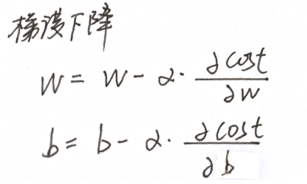 梯度下降
w = w - α · ∂cost/∂w
b = b - α · ∂cost/∂b